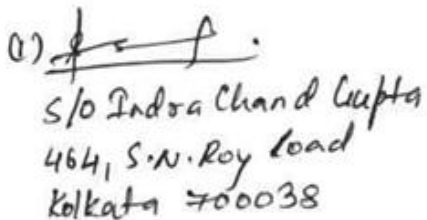 (1)
S/O Indra Chand Gupta
464, S.N. Roy Road
Kolkata 700038